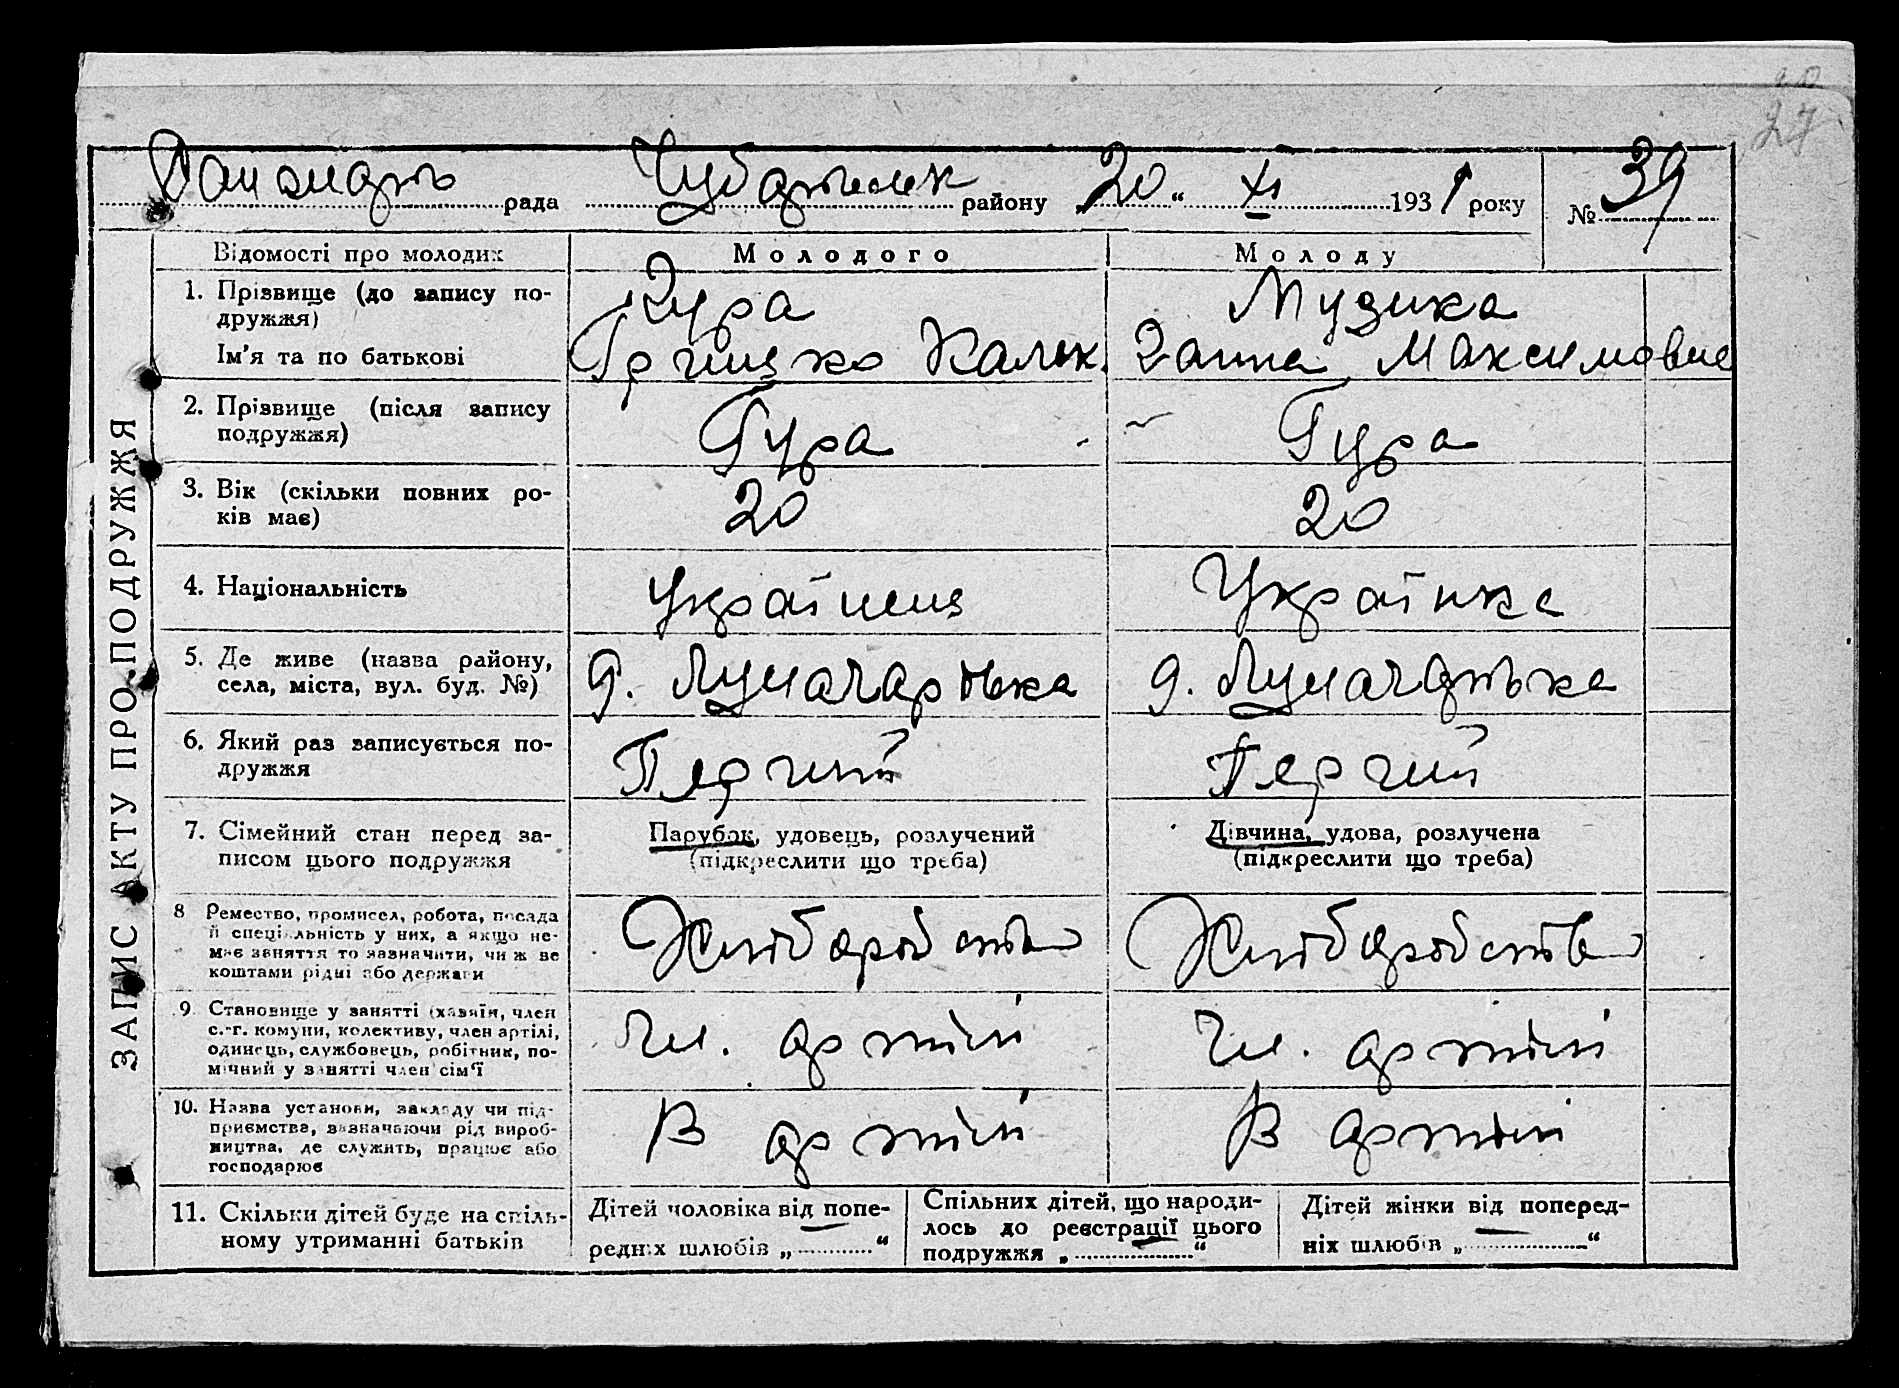 27
рада Чубарівськ району 20 " XI 1931 року № 39
Відомості про молодих Молодого Молоду
1. Прізвище (до запису подружжя) Гура Музика
Ім'я та по батькові Грицько Калік. Ганна Максимовна
2. Прізвище (після запису подружжя) Гура Гура
3. Вік (скільки повних років має) 20 20
4. Національність Українець Українка
5. Де живе (назва району, села, міста, вул. буд. №) Луначарська Луначарська
6. Який раз записується подружжя Перший Перший
7. Сімейний стан перед записом цього подружжя Парубок, удовець, розлучений (підкреслити що треба) Дівчина, удова, розлучена (підкреслити що треба)
8 Ремество, промисел, робота, посада й спеціяльність у них, а якщо немає заняття то зазначити, чи ж ве коштами рідні або держави Хліборобство Хліборобство
9. Становище у занятті (хазяїн, член с.-г. комуни, колективу, член артілі, одинець, службовець, робітник, помічний у занятті член сім'ї Чл. артілі Чл. артілі
10. Назва установи, закладу чи підприємства, зазначаючи рід виробництва, де служить, працює або господарює В артілі В артілі
11. Скільки дітей буде на спільному утриманні батьків Дітей чоловіка від попередніх шлюбів „ — “ Спільних дітей, що народилось до реєстрації цього подружжя „ — “ Дітей жінки від попередніх шлюбів „ — “
ЗАПИС АКТУ ПРО ПОДРУЖЖЯ